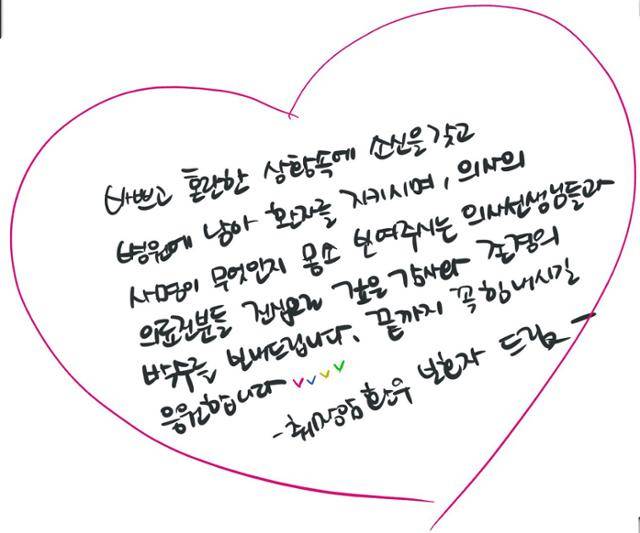 바쁘고 혼란한 상황속에 소신을갖고
병원에 남아 환자를 지키시며, 의사의
사명이 무엇인지 몸소 보여주시는 의사선생님들과
의료진분들 진심으로 깊은 감사와 존경의
박수를 보내드립니다. 끝까지 꼭 힘내시길
응원합니다
-췌장암 환우 보호자 드림-